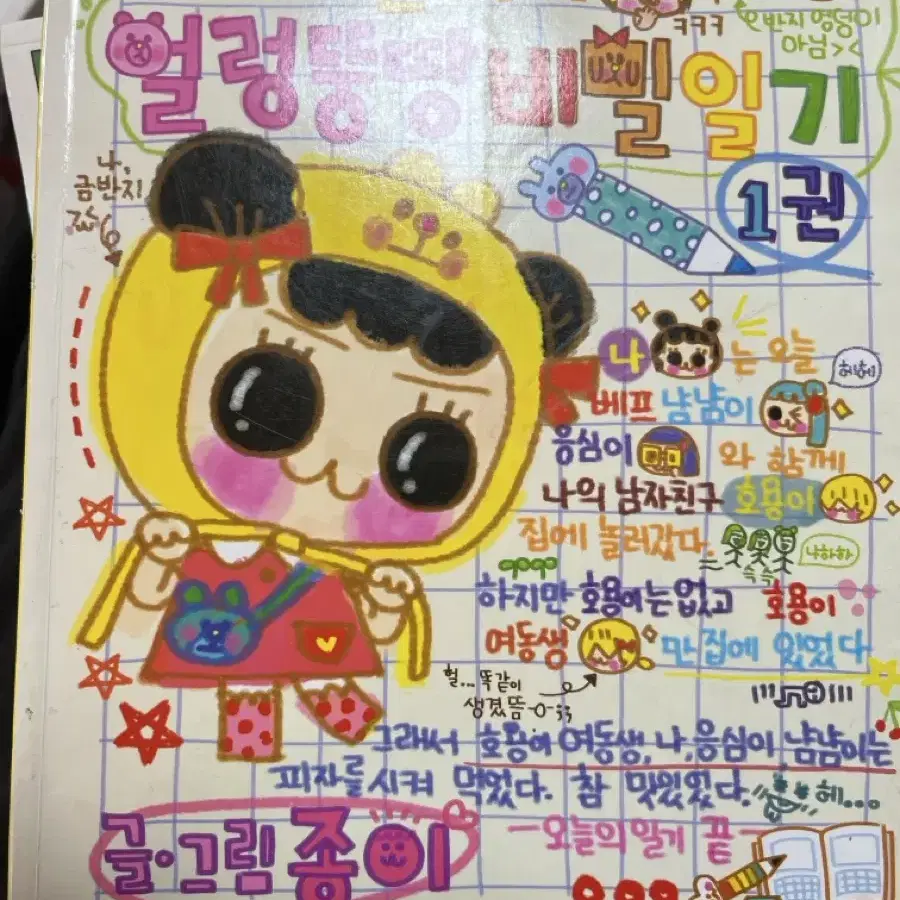 ㅋㅋㅋ
반지 엉덩이
아님><
얼렁뚱땅 비밀일기
1권
나,
금반지
나는 오늘
히히
베프 냠냠이
응심이와 함께
나의 남자친구 호용이
집에 놀러갔다.
냐하하
슥슥
하지만 호용이는 없고 호용이
여동생만 집에 있었다
헐...똑같이
생겼뜸-0-;;
그래서 호용이 여동생, 나, 응심이, 냠냠이는
피자를 시켜 먹었다. 참 맛있었다.
헤...
글·그림 종이
-오늘의 일기 끝-